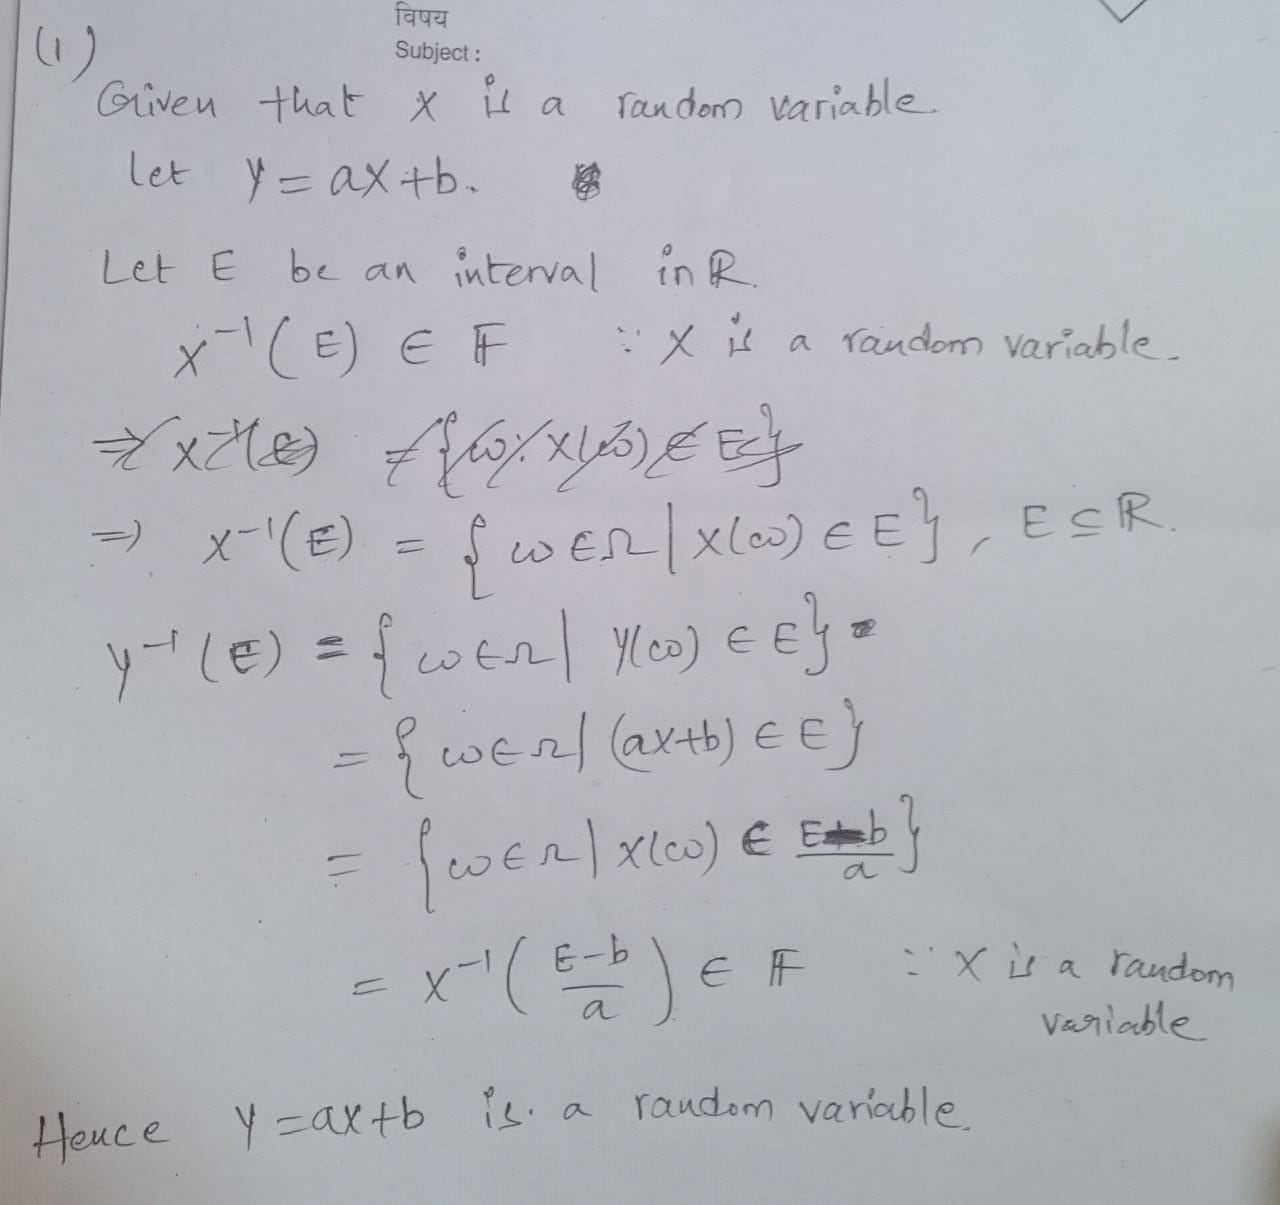 विषय
(1)
Subject :
Given that X is a random variable.
Let Y = aX+b.
Let E be an interval in ℝ.
X⁻¹(E) ∈ 𝔽 ∵ X is a random variable.
⇒ X⁻¹(E) = {ω : X(ω) ∈ E}
⇒ X⁻¹(E) = {ω∈Ω | X(ω) ∈ E}, E ⊆ ℝ.
Y⁻¹(E) = {ω∈Ω | Y(ω) ∈ E}
= {ω∈Ω | (aX+b) ∈ E}
= {ω∈Ω | X(ω) ∈ (E-b)/a}
= X⁻¹((E-b)/a) ∈ 𝔽 ∵ X is a random
variable
Hence Y = aX+b is a random variable.